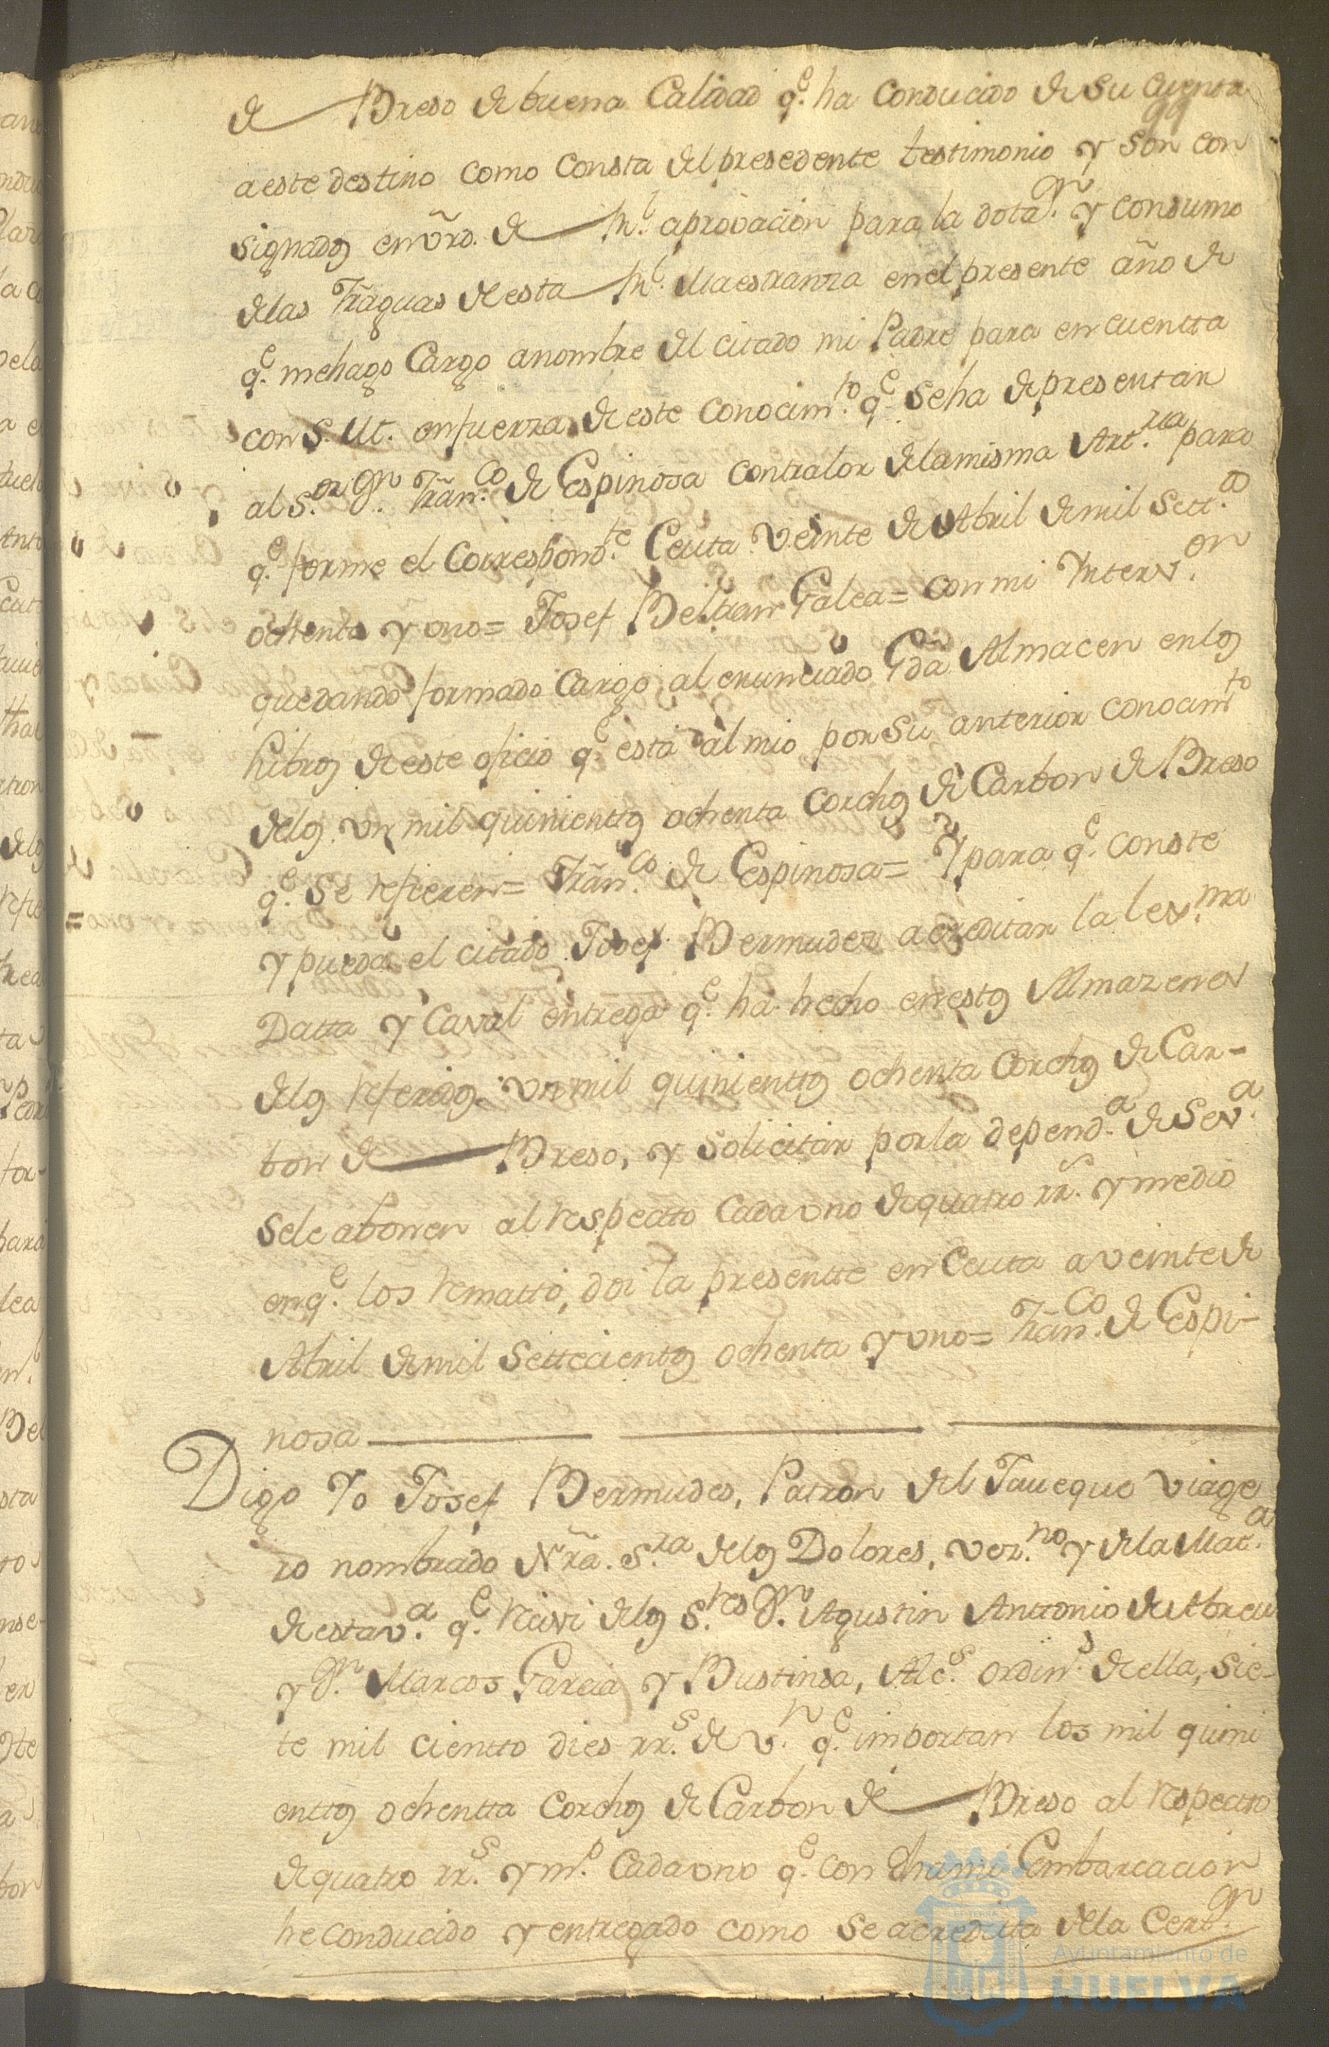 de Breso de buena Calidad q.e ha Conducido de su cuenta
99
a este destino como consta del presedente testimonio y son con
signados en vrd. de Rl. aprovacion para la dota.n y consumo
de las Fraguas de esta Rl. Maestranza en el presente año de
q.e me hago Cargo a nombre del citado mi Padre para en cuentta
con S. M. en fuerza de este conocim.to q.e se ha de presentar
al S.or D.n Fran.co de Espinosa contralor de la misma Art.ria para
q.e forme el Correspond.te Ceuta veinte de Abril de mil Sett.s
ochenta y uno= Josef Beltran Galea= con mi Interv.on
quedando formado Cargo al enunciado Gda Almacen en los
Libros de este oficio q.e esta al mio por su anterior conocim.to
de los un mil quinienttos ochenta Corchos de Carbon de Breso
q.e se refieren= Fran.co de Espinosa= Y para q.e conste
y pueda el citado Josef Bermudez acreditar la lex.ma
Datta y Caval entrega q.e ha hecho en estos Almazenes
de los referidos un mil quinienttos ochenta Corchos de Car-
bon de Breso, y solicitar por la depend.a de Sev.a
se le abonen al respectto Cada uno de quatro rr.s y medio
en q.e los rematto, doi la presentte en Ceuta a veinte de
Abril de mil Settecientos ochenta y uno= Fran.co de Espi-
nosa
Digo Yo Josef Bermudes, Patron del Javeque Viage
ro nombrado Nra. S.ra de los Dolores, vez.no y de la Mat.a
de esta v.a q.e recivi de los S.res D.n Agustin Anttonio de Abreu
y D.n Marcos Garcia y Bustinsa, Alc.s ordin.s de ella, sie-
te mil cientto dies rr.s de v.n q.e importan los mil quini
enttos ochentta Corchos de Carbon de Breso al respectto
de quatro rr.s y m.o Cada uno q.e con dha mi Embarcacion
he conducido y entregado como se acredita de la Cert.on
Ayuntamiento de
HUELVA